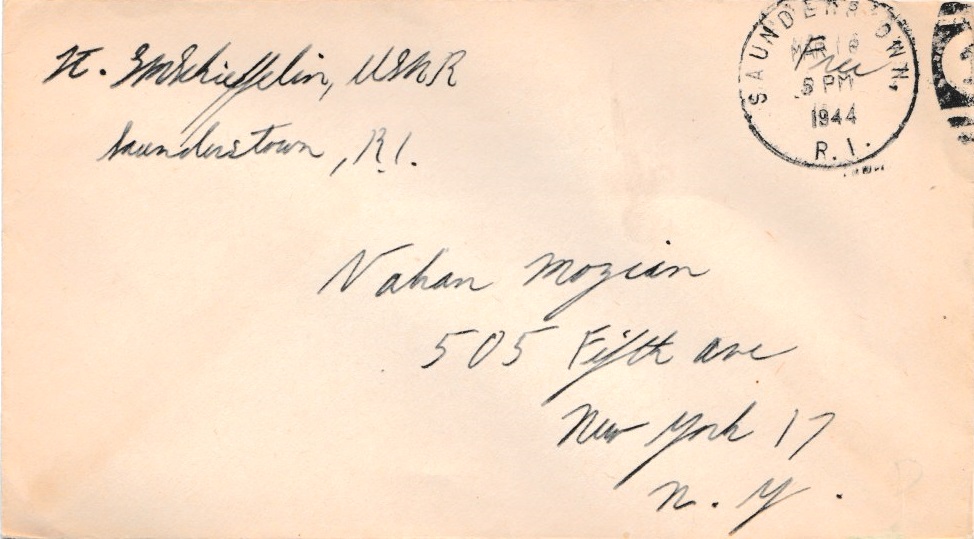 Lt. GMSchieffelin, USNR
Saunderstown, R.I.
SAUNDERSTOWN,
MAR 16
Free
PM
1944
R. I.
Vahan Mozian
505 Fifth Ave
New York 17
N. Y.